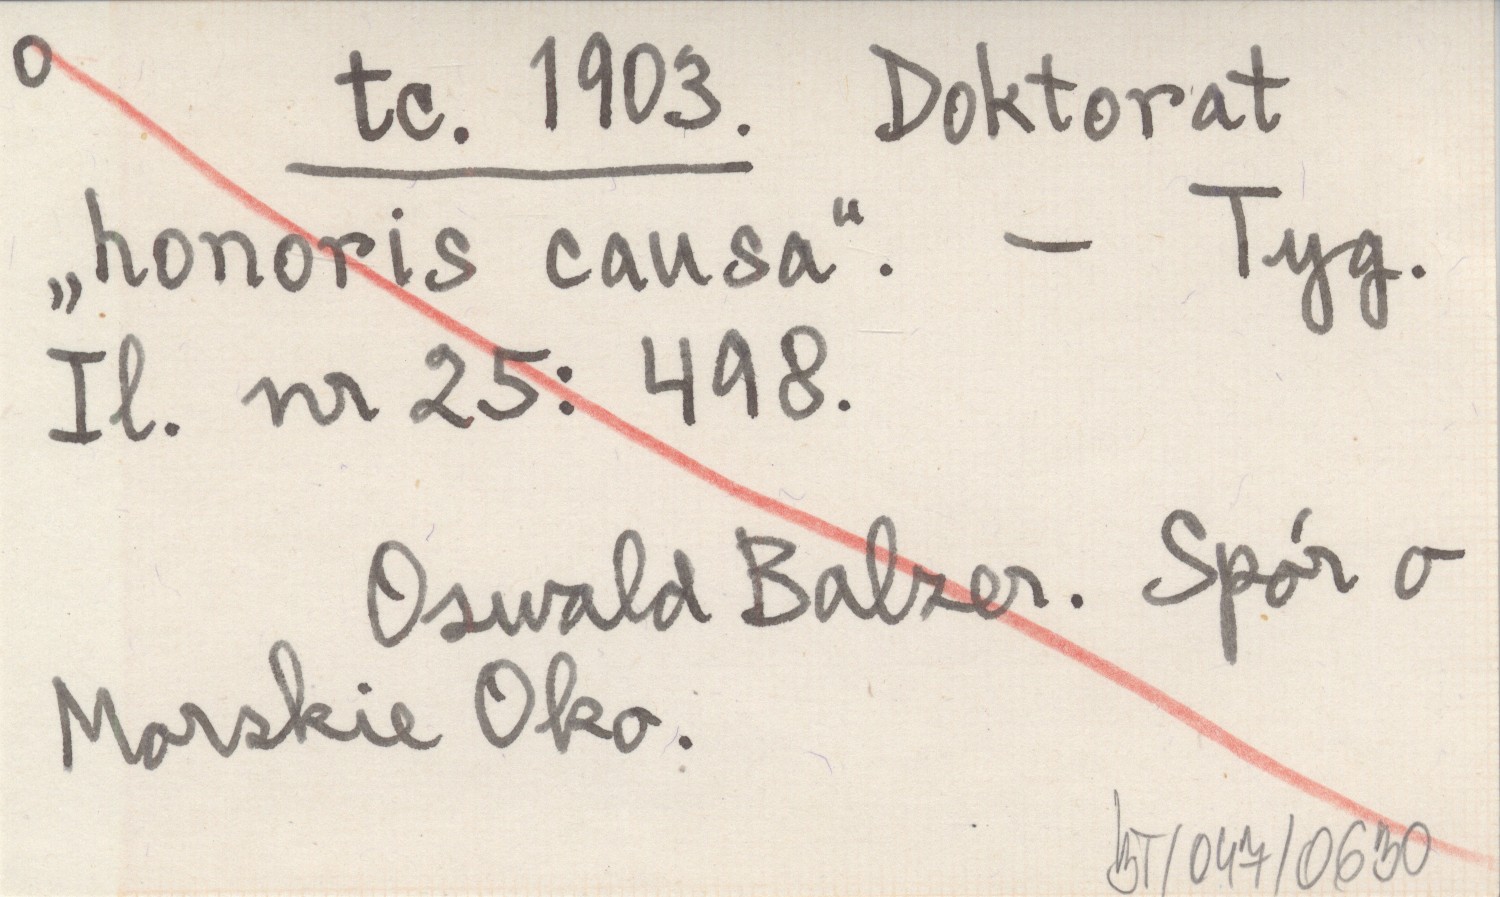 o tc. 1903. Doktorat
„honoris causa“. – Tyg.
Il. nr 25: 498.
Oswald Balzer. Spór o
Morskie Oko.
BT/047/0630